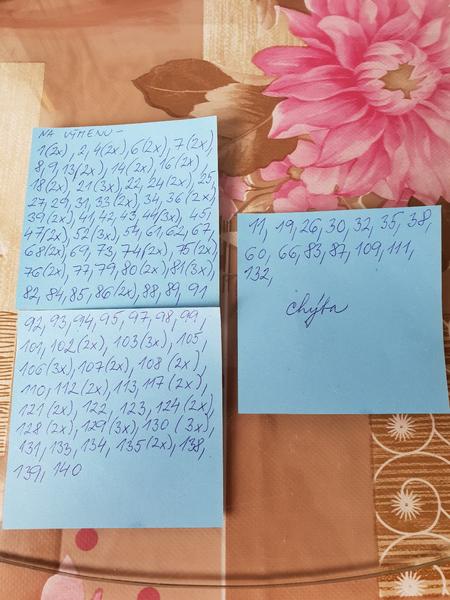 NA VÝMENU -
1(2x), 2, 4(2x), 6(2x), 7(2x),
8, 9, 13(2x), 14(2x), 16(2x),
18(2x), 21(3x), 22, 24(2x), 25,
27, 29, 31, 33(2x), 34, 36(2x),
39(2x), 41, 42, 43, 44(3x), 45,
47(2x), 52(3x), 54, 61, 62, 67,
68(2x), 69, 73, 74(2x), 75(2x),
76(2x), 77, 79, 80(2x), 81(3x),
82, 84, 85, 86(2x), 88, 89, 91
92, 93, 94, 95, 97, 98, 99,
101, 102(2x), 103(3x), 105,
106(3x), 107(2x), 108(2x),
110, 112(2x), 113, 117(2x),
121(2x), 122, 123, 124(2x),
128(2x), 129(3x), 130(3x),
131, 133, 134, 135(2x), 138,
139, 140
11, 19, 26, 30, 32, 35, 38,
60, 66, 83, 87, 109, 111,
132,
chýba